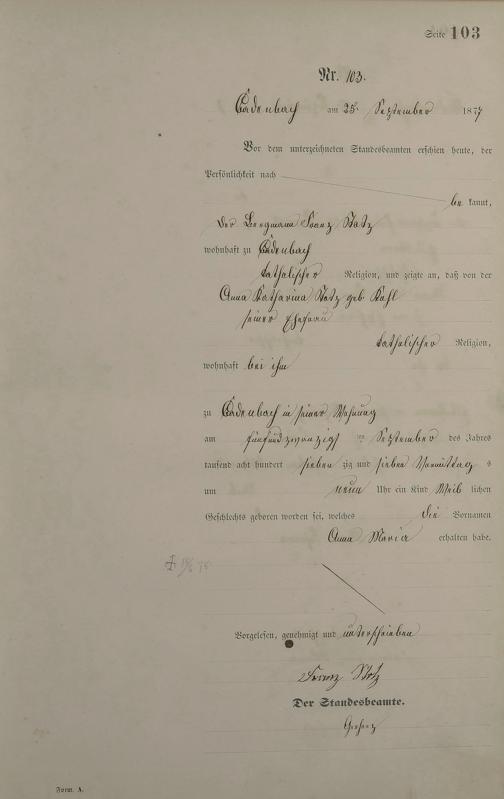 Seite 103
Nr. 103.
Cadenbach am 25. September 1877
Vor dem unterzeichneten Standesbeamten erschien heute, der
Persönlichkeit nach
be kannt,
der Bergmann Franz Stotz
wohnhaft zu Cadenbach
katholischer Religion, und zeigte an, daß von der
Anna Katharina Stotz geb. Kohl
seiner Ehefrau
katholischer Religion,
wohnhaft bei ihm
zu Cadenbach in seiner Wohnung
am fünfundzwanzigsten September des Jahres
tausend acht hundert sieben zig und sieben Vormittag s
um neun Uhr ein Kind Weib lichen
Geschlechts geboren worden sei, welches die Vornamen
Anna Maria erhalten habe.
Vorgelesen, genehmigt und unterschrieben
Franz Stotz
Der Standesbeamte.
Form. A.